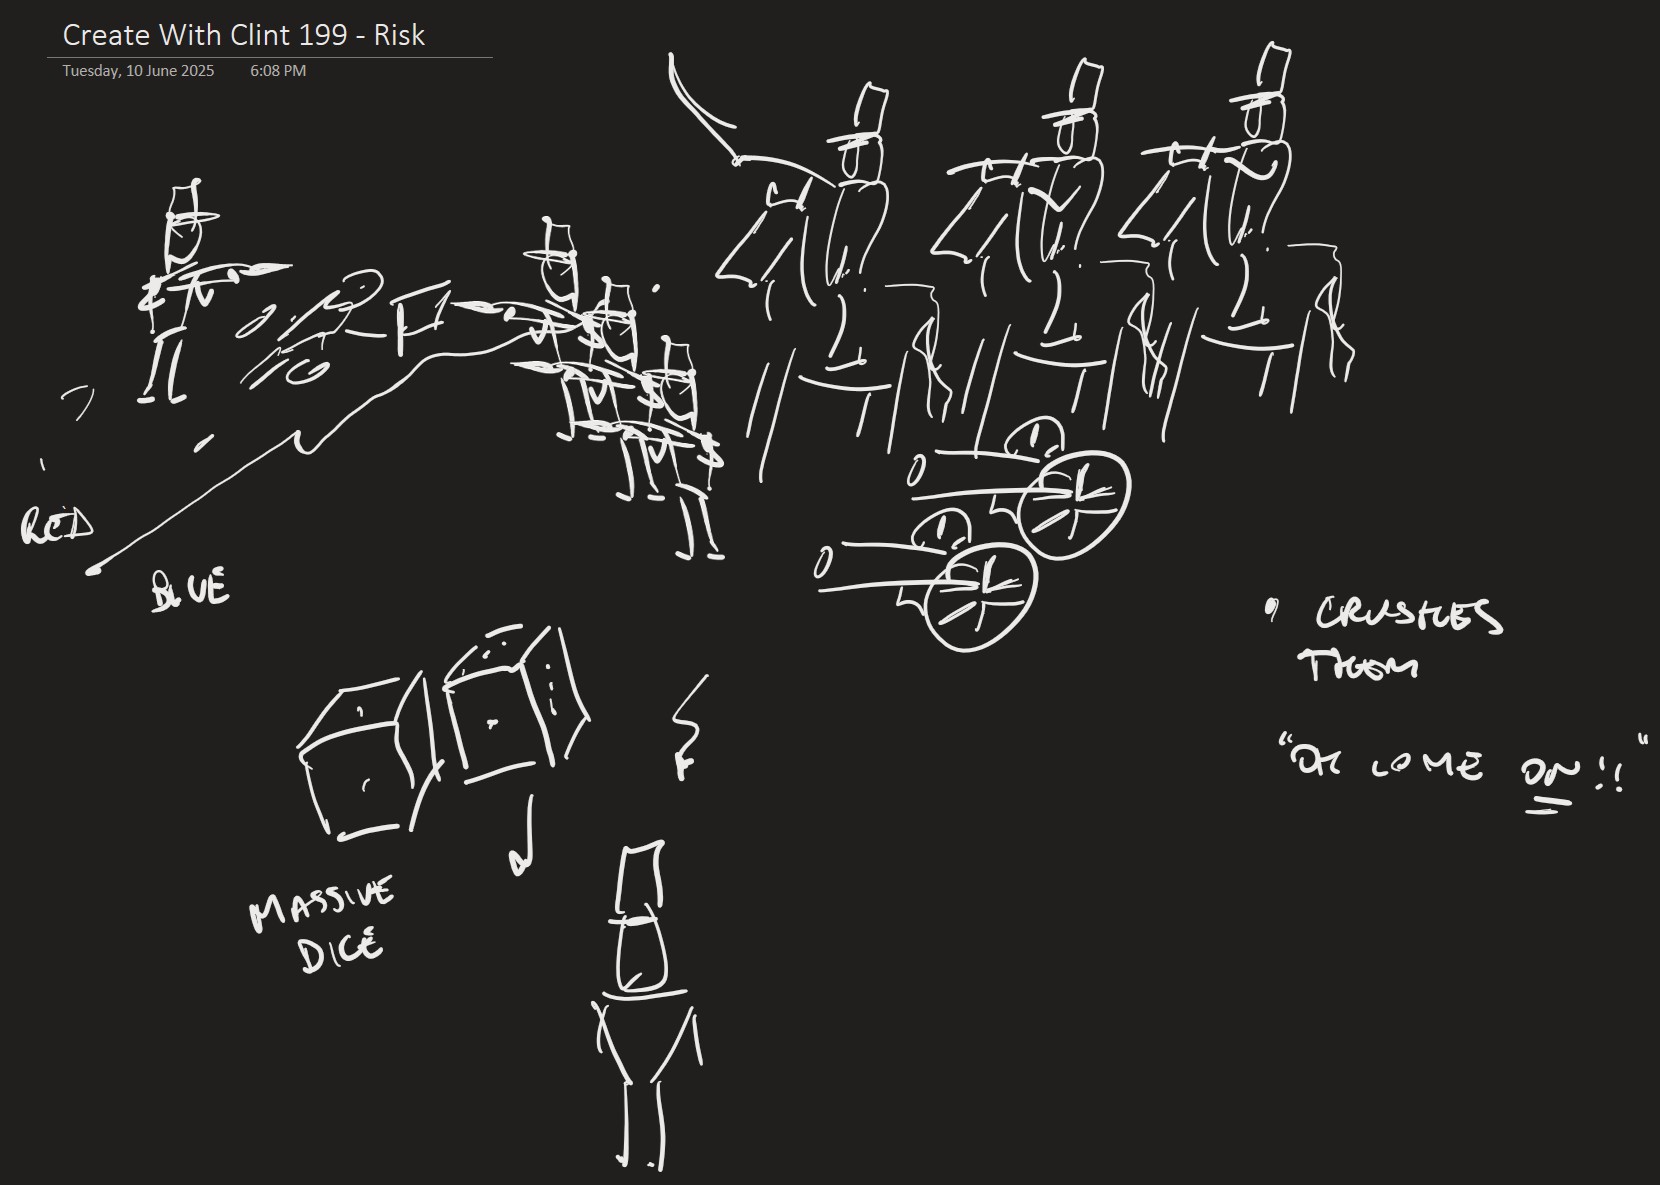 Create With Clint 199 - Risk
Tuesday, 10 June 2025 6:08 PM
RED
BLUE
MASSIVE
DICE
• CRUSHES
THEM
"OH COME ON!!"